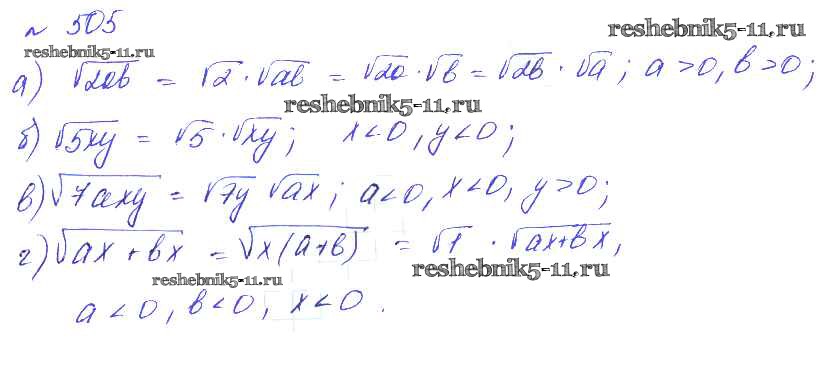 № 505
reshebnik5-11.ru
reshebnik5-11.ru
а) √2ab = √2 · √ab = √2a · √b = √2b · √a ; a > 0, b > 0 ;
reshebnik5-11.ru
б) √5xy = √5 · √xy ; x < 0, y < 0 ;
в) √7axy = √7y √ax ; a < 0, x < 0, y > 0 ;
г) √ax + bx = √x(a+b) = √1 · √ax+bx ,
reshebnik5-11.ru
reshebnik5-11.ru
a < 0, b < 0, x < 0 .